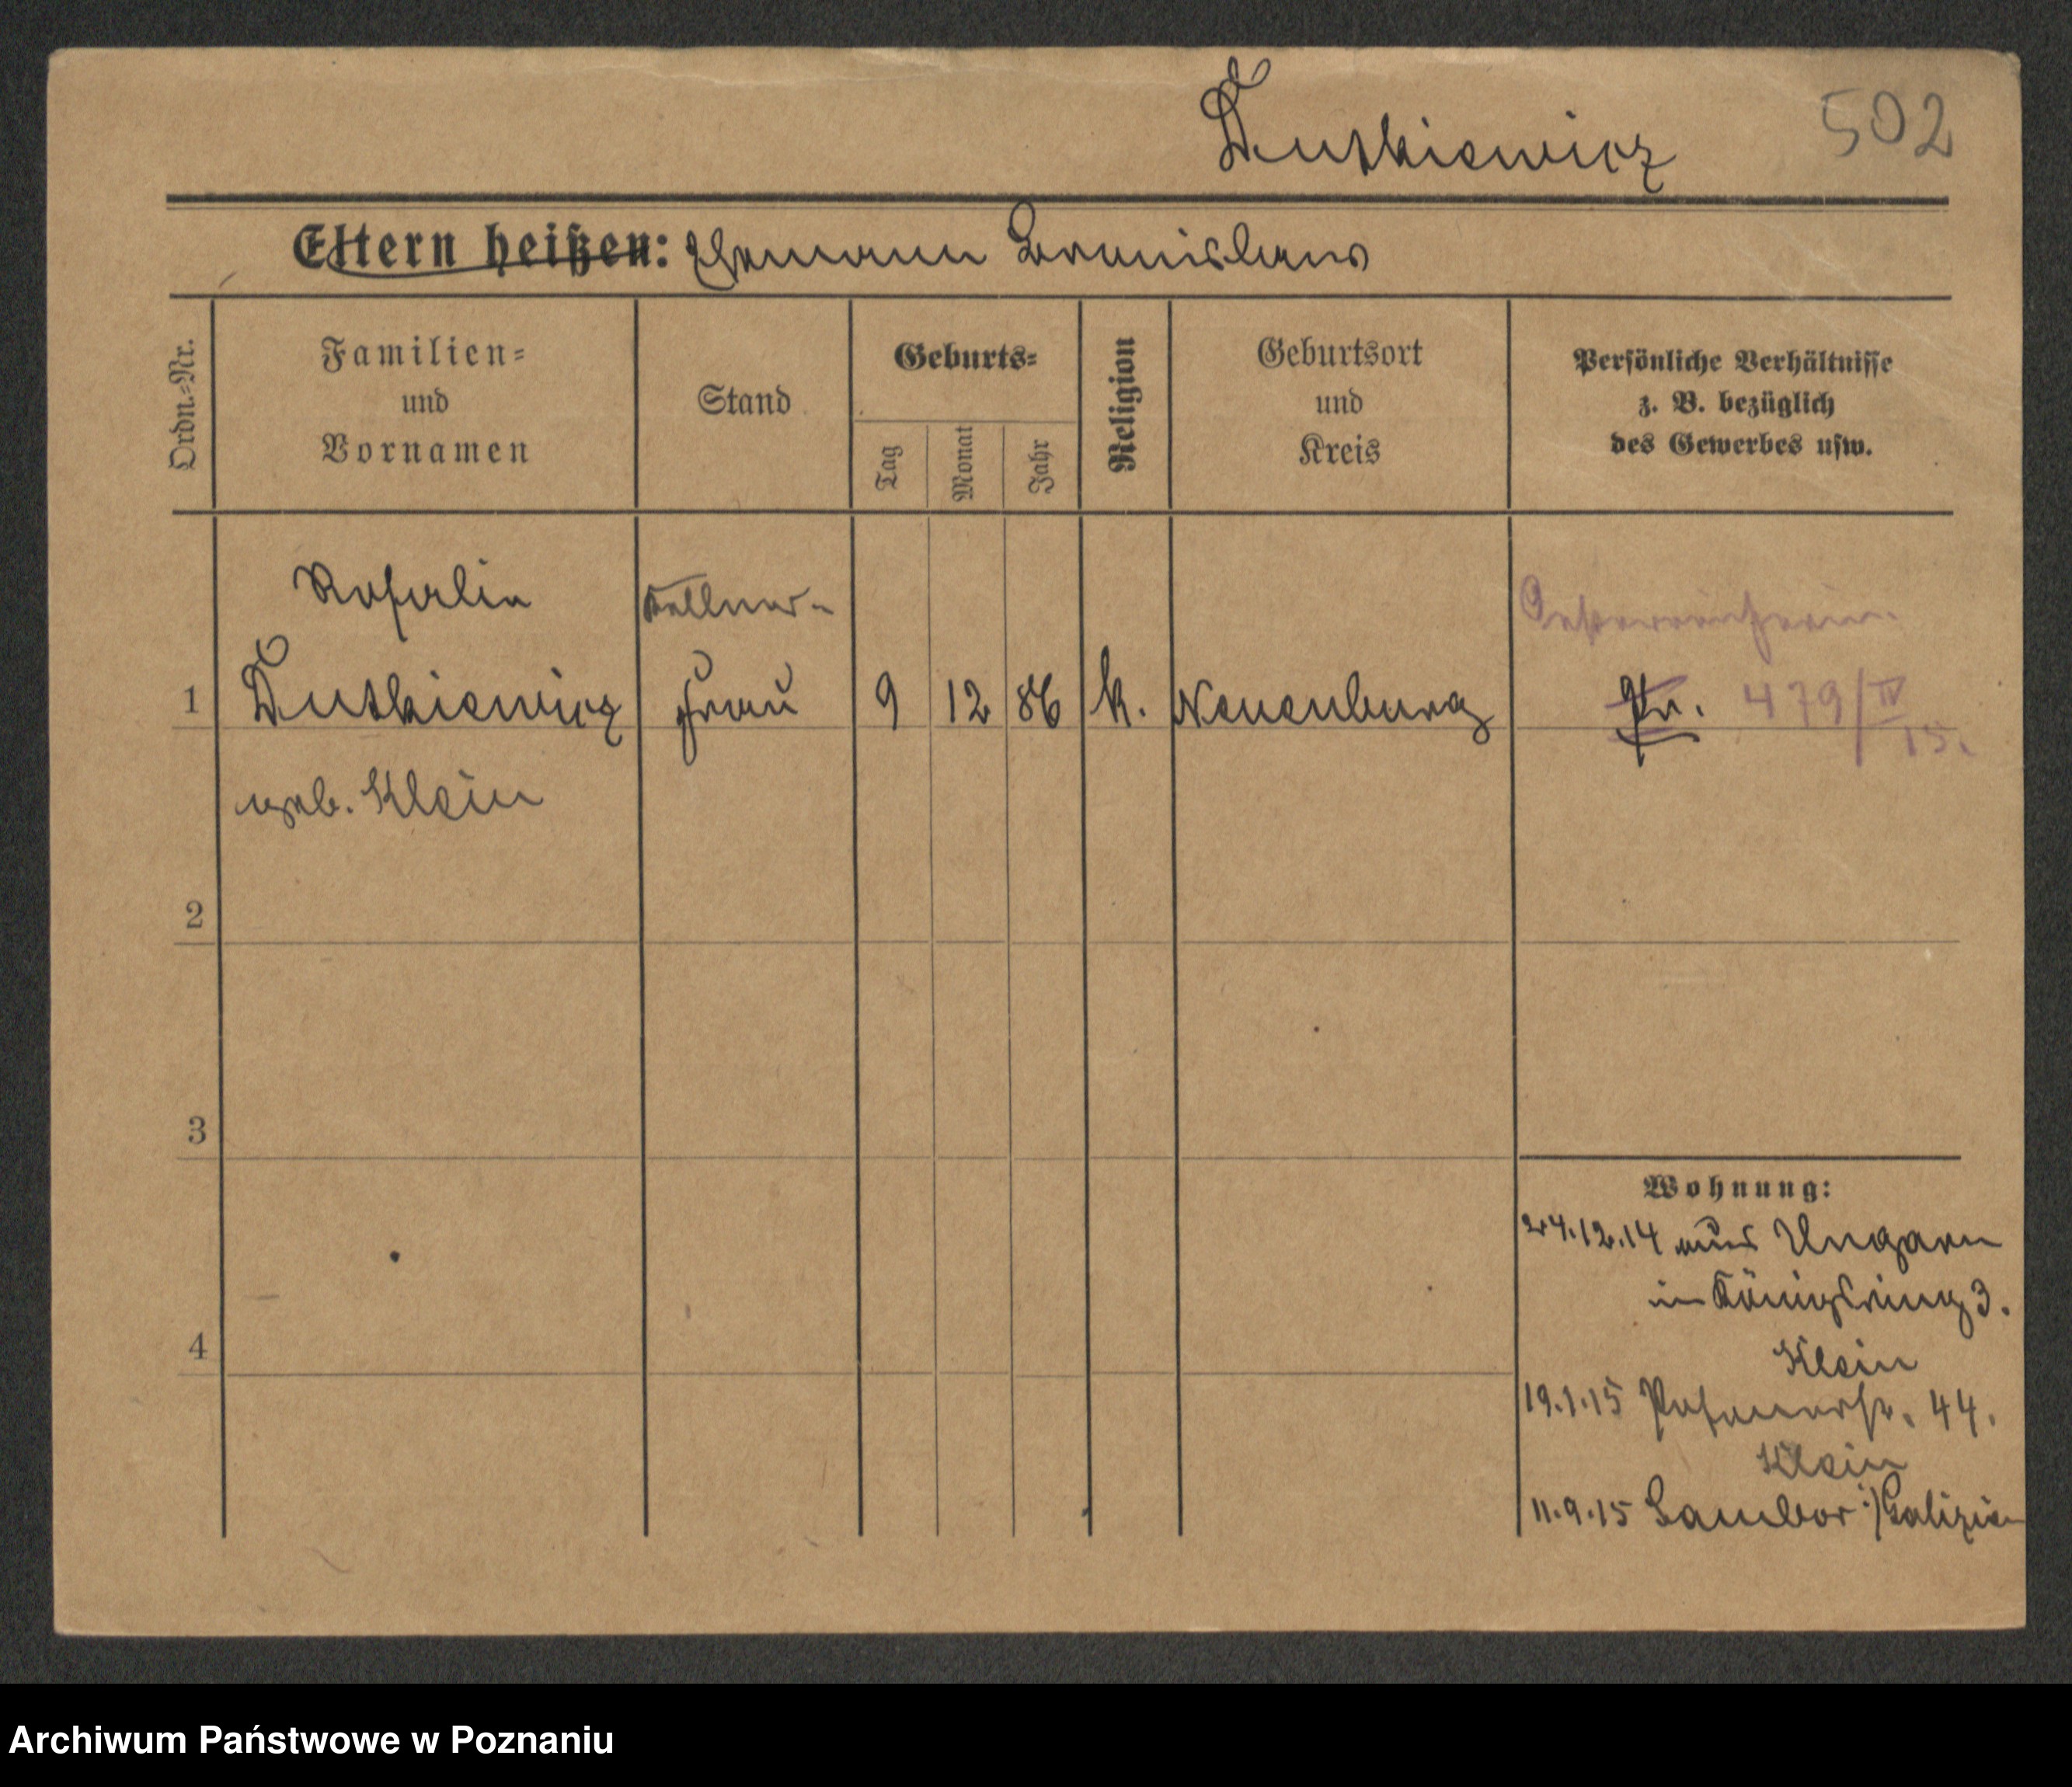 Dutkiewicz
502
Eltern heißen: Ehemann Bronislaus
Ordn.-Nr.
Familien-
und
Vornamen
Stand
Geburts-
Tag
Monat
Jahr
Religion
Geburtsort
und
Kreis
Persönliche Verhältnisse
z. B. bezüglich
des Gewerbes usw.
Rosalia
Kellner-
Oesterreicherin.
1 Dutkiewicz Frau 9 12 86 k. Neuenburg Pr. 479/IV
15.
geb. Klein
2
3
4
Wohnung:
24.12.14 aus Ungarn
in Königsring 3.
Klein
19.1.15 Posenerstr. 44.
Klein
11.9.15 Sambor :/Galizien
Archiwum Państwowe w Poznaniu